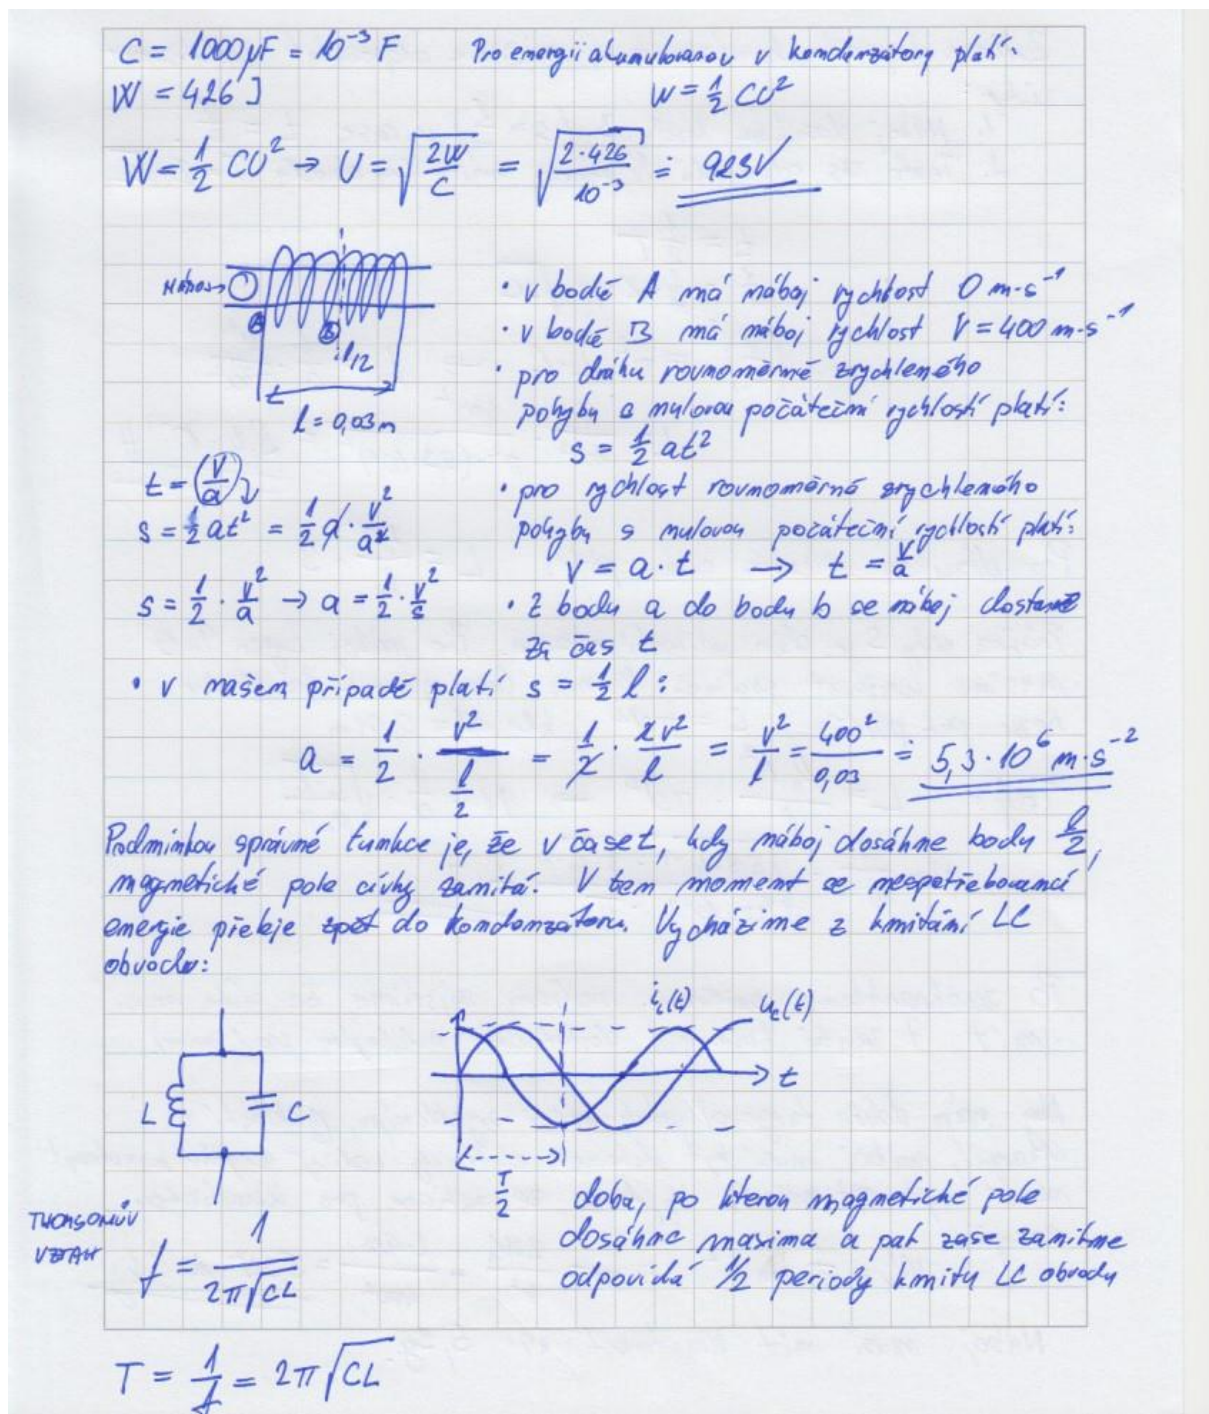 C = 1000μF = 10⁻³ F
Pro energii akumulovanou v kondenzátory platí:
W = 426 J
W = ½ CU²
W = ½ CU² → U = √(2W/C) = √(2·426/10⁻³) ≐ 923V
NÁBOJ→
A
B
l/2
l = 0,03m
• v bodě A má náboj rychlost 0 m·s⁻¹
• v bodě B má náboj rychlost V = 400 m·s⁻¹
• pro dráhu rovnoměrně zrychleného
pohybu s nulovou počáteční rychlostí platí:
s = ½ at²
t = (v/a)
s = ½ at² = ½ a · v²/a²
s = ½ · v²/a → a = ½ · v²/s
• pro rychlost rovnoměrně zrychleného
pohybu s nulovou počáteční rychlostí platí:
v = a · t → t = v/a
• z bodu a do bodu b se náboj dostane
za čas t
• v našem případě platí s = ½ l :
a = 1/2 · v²/(l/2) = 1/2 · 2v²/l = v²/l = 400²/0,03 ≐ 5,3 · 10⁶ m·s⁻²
Podmínkou správné funkce je, že v čase t, kdy náboj dosáhne bodu l/2,
magnetické pole cívky zaniká. V ten moment se nespotřebovaná
energie přeleje zpět do kondenzátoru. Vycházíme z kmitání LC
obvodu:
L
C
i_L(t)
u_c(t)
t
T/2
doba, po kterou magnetické pole
dosáhne maxima a pak zase zanikne
odpovídá 1/2 periody kmitu LC obvodu
THOMSONŮV
VZTAH
f = 1/(2π√CL)
T = 1/f = 2π√CL